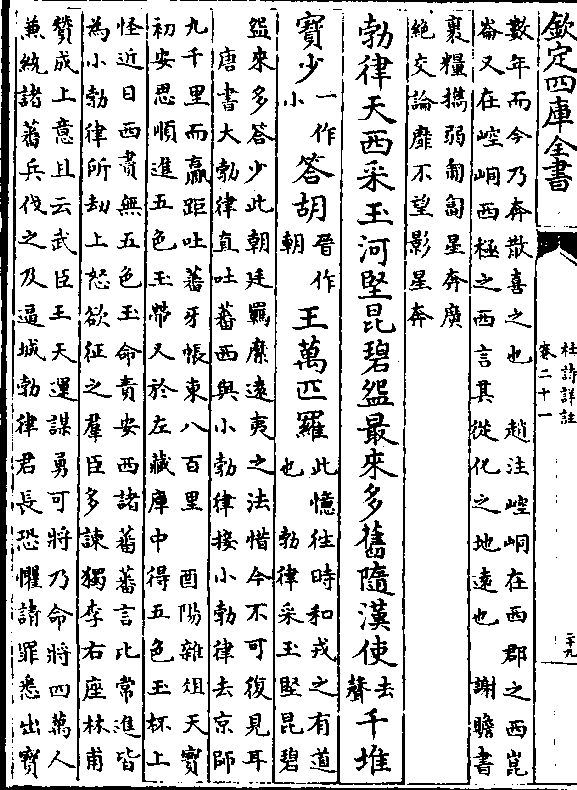 欽定四庫全書
杜詩詳註
卷二十一
二十九
數年而今乃奔散喜之也 趙注崆峒在西郡之西崑
崙又在崆峒西極之西言其從化之地遠也 謝瞻書
裹糧擕弱匍匐星奔廣
絶交論靡不望影星奔
勃律天西采玉河堅昆碧盌最來多舊隨漢使去聲千堆
寶少一作小答胡晉作朝王萬匹羅此憶往時和戎之有道也 勃律采玉堅昆碧
盌來多答少此朝廷羈縻遠夷之法惜今不可復見耳
唐書大勃律直吐蕃西與小勃律接小勃律去京師
九千里而羸距吐蕃牙帳東八百里 酉陽雜俎天寶
初安思順進五色玉帶又於左藏庫中得五色玉杯上
怪近日西賮無五色玉命責安西諸蕃蕃言比常進皆
為小勃律所劫上怒欲征之羣臣多諫獨李右座林甫
贊成上意且云武臣王天運謀勇可將乃命將四萬人
兼統諸蕃兵伐之及逼城勃律君長恐懼請罪悉出寶